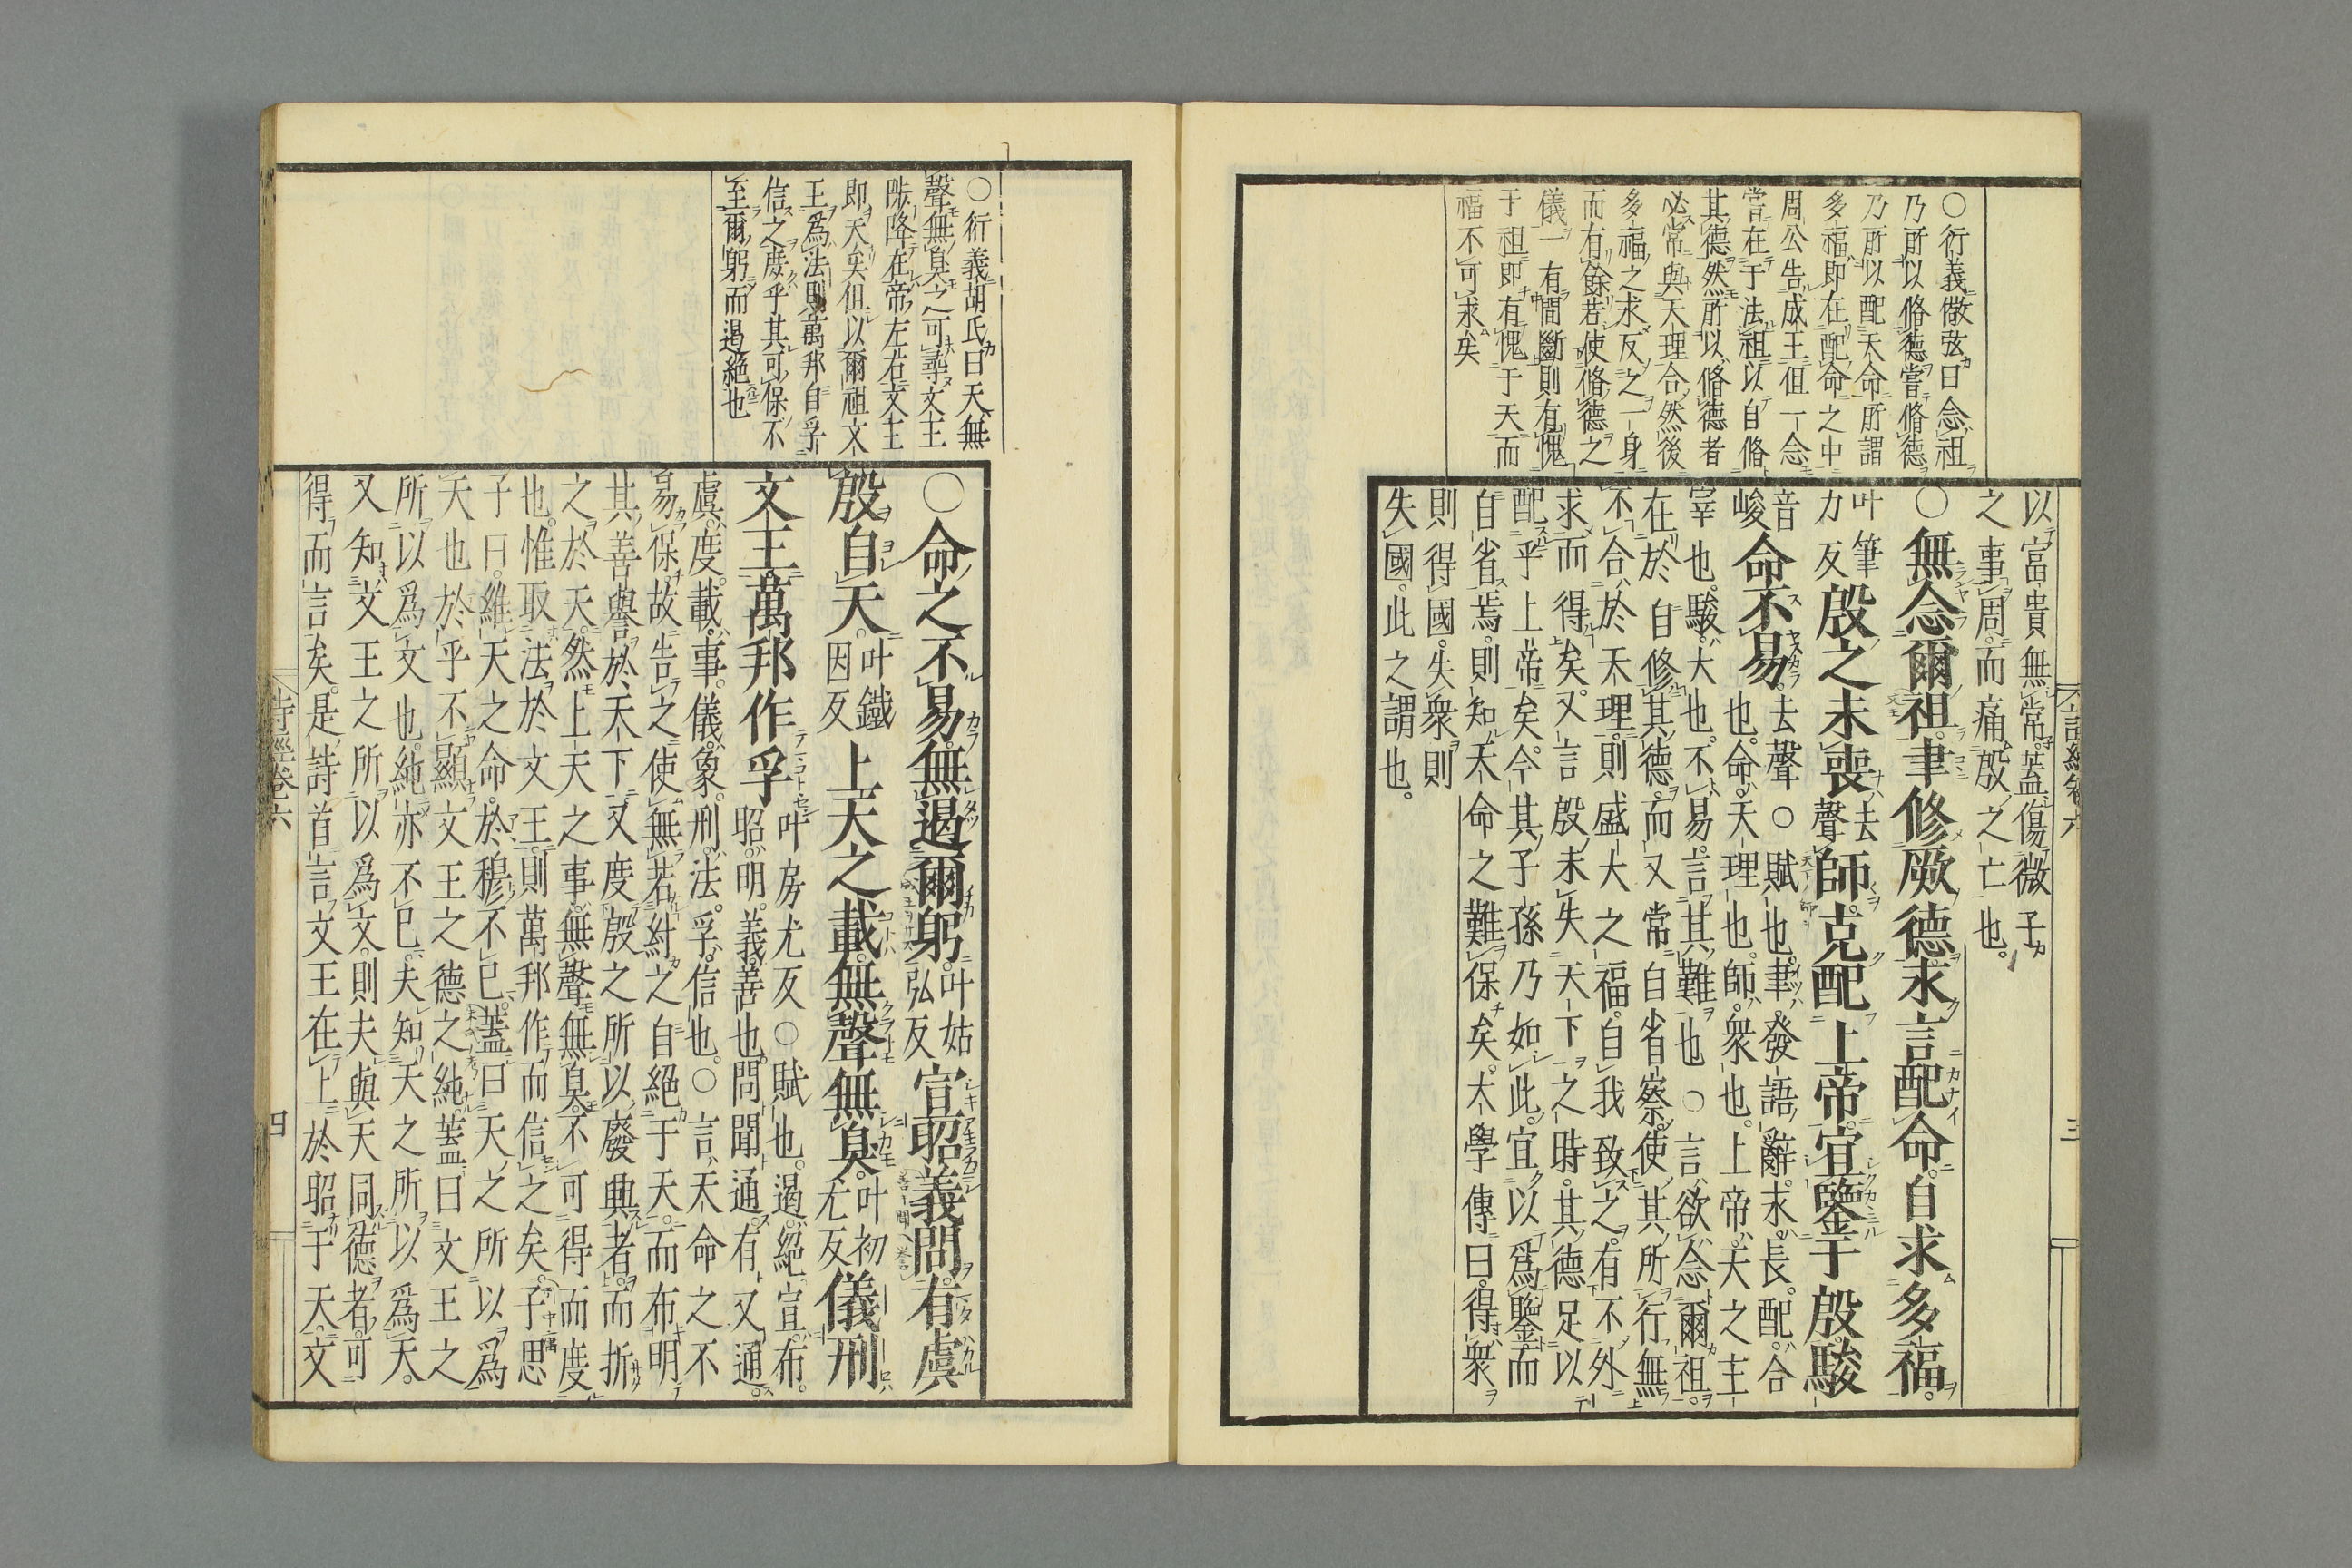 詩經卷六
三
○衍義儆弦曰念祖
乃所以脩德嘗脩德
乃所以配天命所謂
多福即在配命之中
周公告成王但一念
嘗在于法祖以自脩
其德然所以脩德者
必常與天理合然後
多福之求反之一身
而有餘若使脩德之
儀一有間斷則有愧
于祖即有愧于天而
福不可求矣
以富貴無常蓋傷微子
之事周而痛殷之亡也
○無念爾祖聿修厥德永言配命自求多福
叶筆
力反
殷之未喪
去
聲
師克配上帝宜鑒于殷駿
音
峻
命不易
去聲○賦也聿發語辭永長配合
也命天理也師衆也上帝天之主
宰也駿大也不易言其難也○言欲念爾祖
在於自修其德而又常自省察使其所行無
不合於天理則盛大之福自我致之有不外
求而得矣又言殷未失天下之時其德足以
配乎上帝矣今其子孫乃如此宜以爲鑒而
自省焉則知天命之難保矣大學傳曰得衆
則得國失衆則
失國此之謂也
○衍義胡氏曰天無
聲無臭之可尋文王
陟降在帝左右文王
即天矣但以爾祖文
王爲法則萬邦自孚
信之度乎其可保不
至爾躬而遏絶也
○命之不易無遏爾躬
叶姑
弘反
宣昭義問有虞
殷自天
叶鐵
因反
上天之載無聲無臭
叶初
尤反
儀刑
文王萬邦作孚
叶房尤反○賦也遏絶宣布
昭明義善也問聞通有又通
虞度載事儀象刑法孚信也○言天命之不
易保故告之使無若紂之自絶于天而布明
其善譽於天下又度殷之所以廢興者而折
之於天然上天之事無聲無臭不可得而度
也惟取法於文王則萬邦作而信之矣子思
子曰維天之命於穆不已蓋曰天之所以爲
天也於乎不顯文王之德之純蓋曰文王之
所以爲文也純亦不已夫知天之所以爲天
又知文王之所以爲文則夫與天同德者可
得而言矣是詩首言文王在上於昭于天文
詩經卷六
四